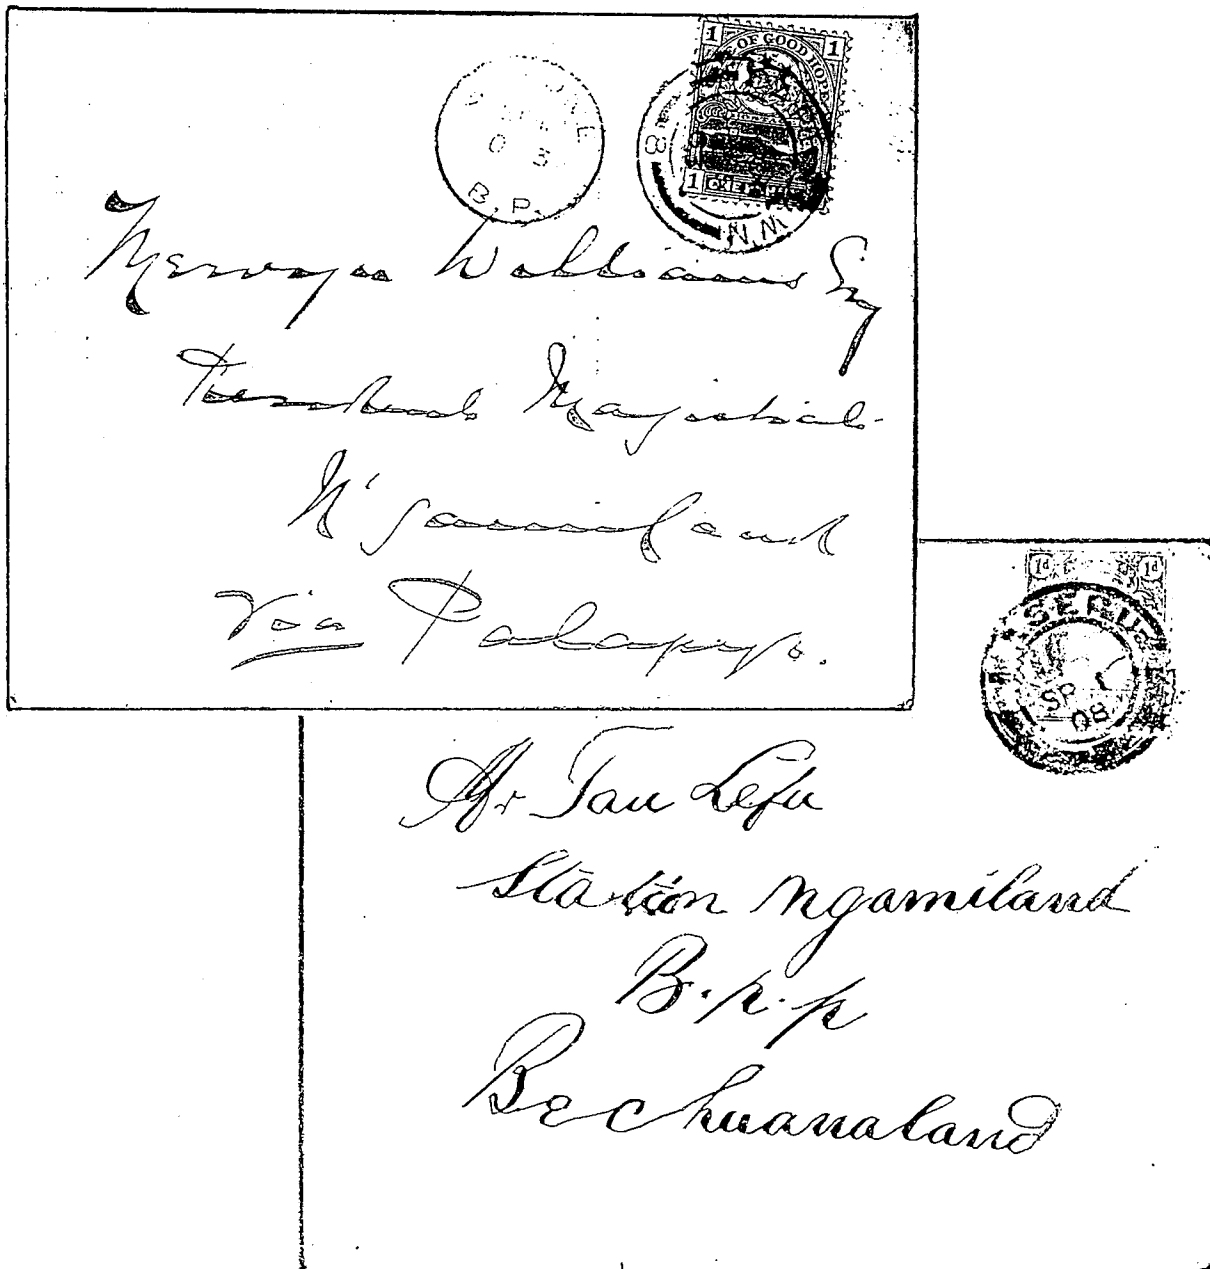 1 OF GOOD HOPE 1
1
03
B.P.
8
N.M
Mervyn Williams Esq
Resident Magistrate
N'gamiland
Via Palapye.
1d 1d
SP
08
Mr Tau Lefu
Station Ngamiland
B.p.p
Bechuanaland